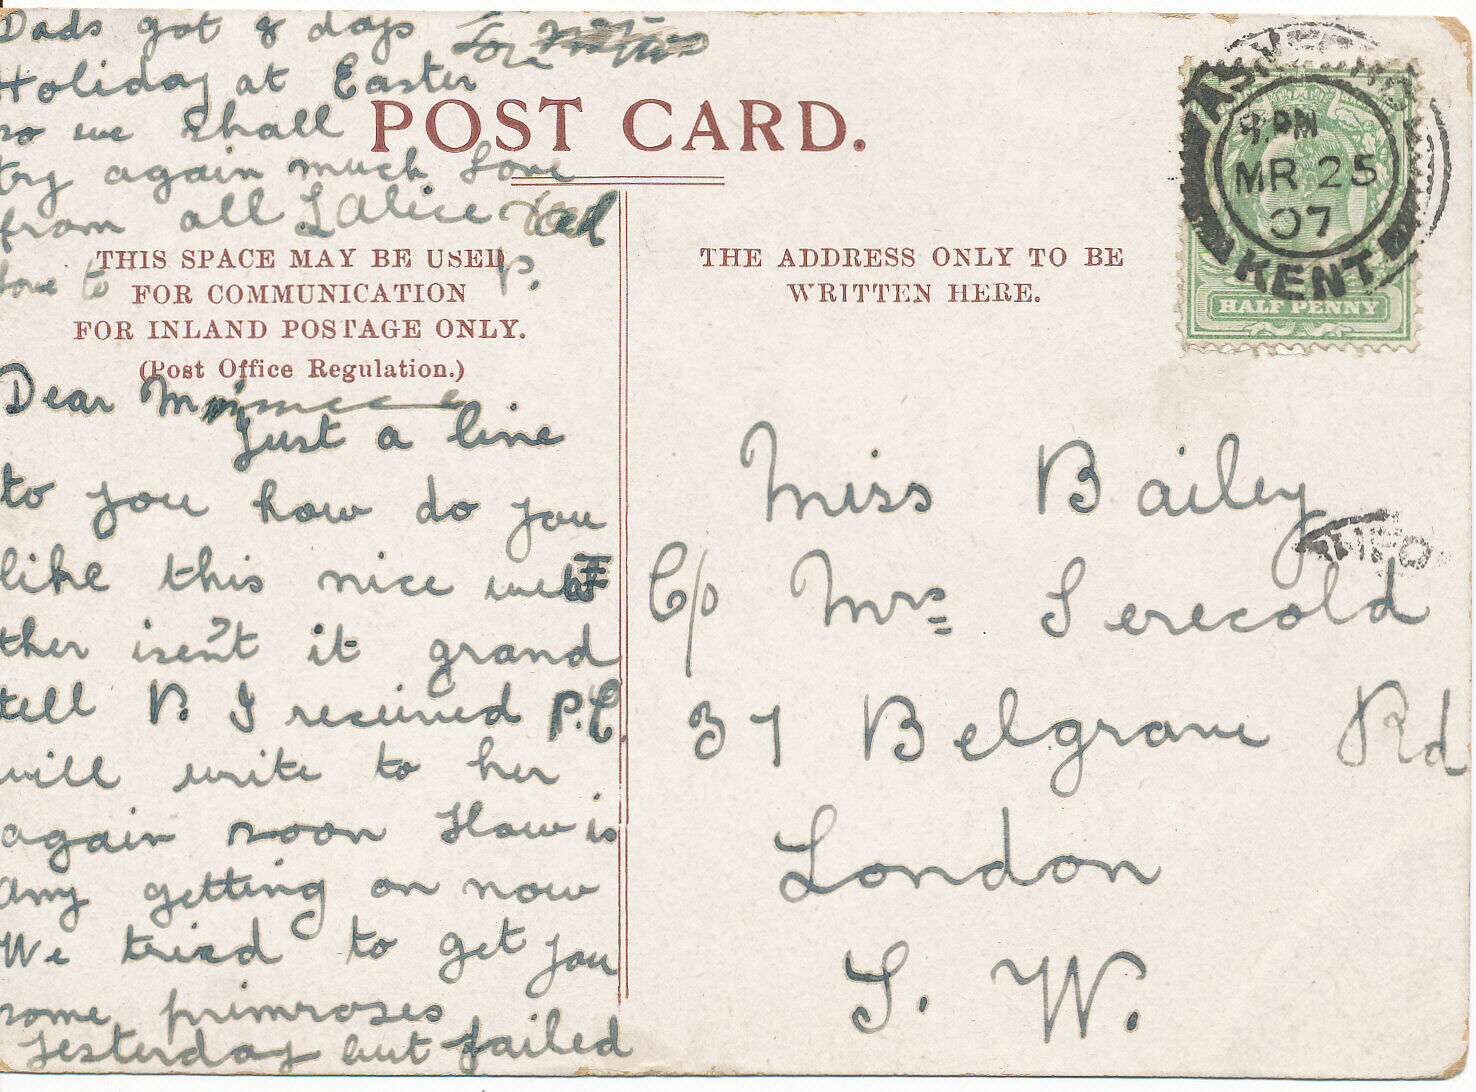 Dads got 8 days for
Holiday at Easter
so we shall
try again much love
from all L Alice
love to
P.
POST CARD.
THIS SPACE MAY BE USED
FOR COMMUNICATION
FOR INLAND POSTAGE ONLY.
(Post Office Regulation.)
Dear
Just a line
to you how do you
like this nice wea
ther isen't it grand
tell B. I received P.C.
will write to her
again soon How is
Amy getting on now
We tried to get you
some primroses
yesterday but failed
THE ADDRESS ONLY TO BE
WRITTEN HERE.
ASHFORD
9 PM
MR 25
07
KENT
HALF PENNY
Miss Bailey
C/o Mrs Serecold
37 Belgrave Rd
London
S. W.